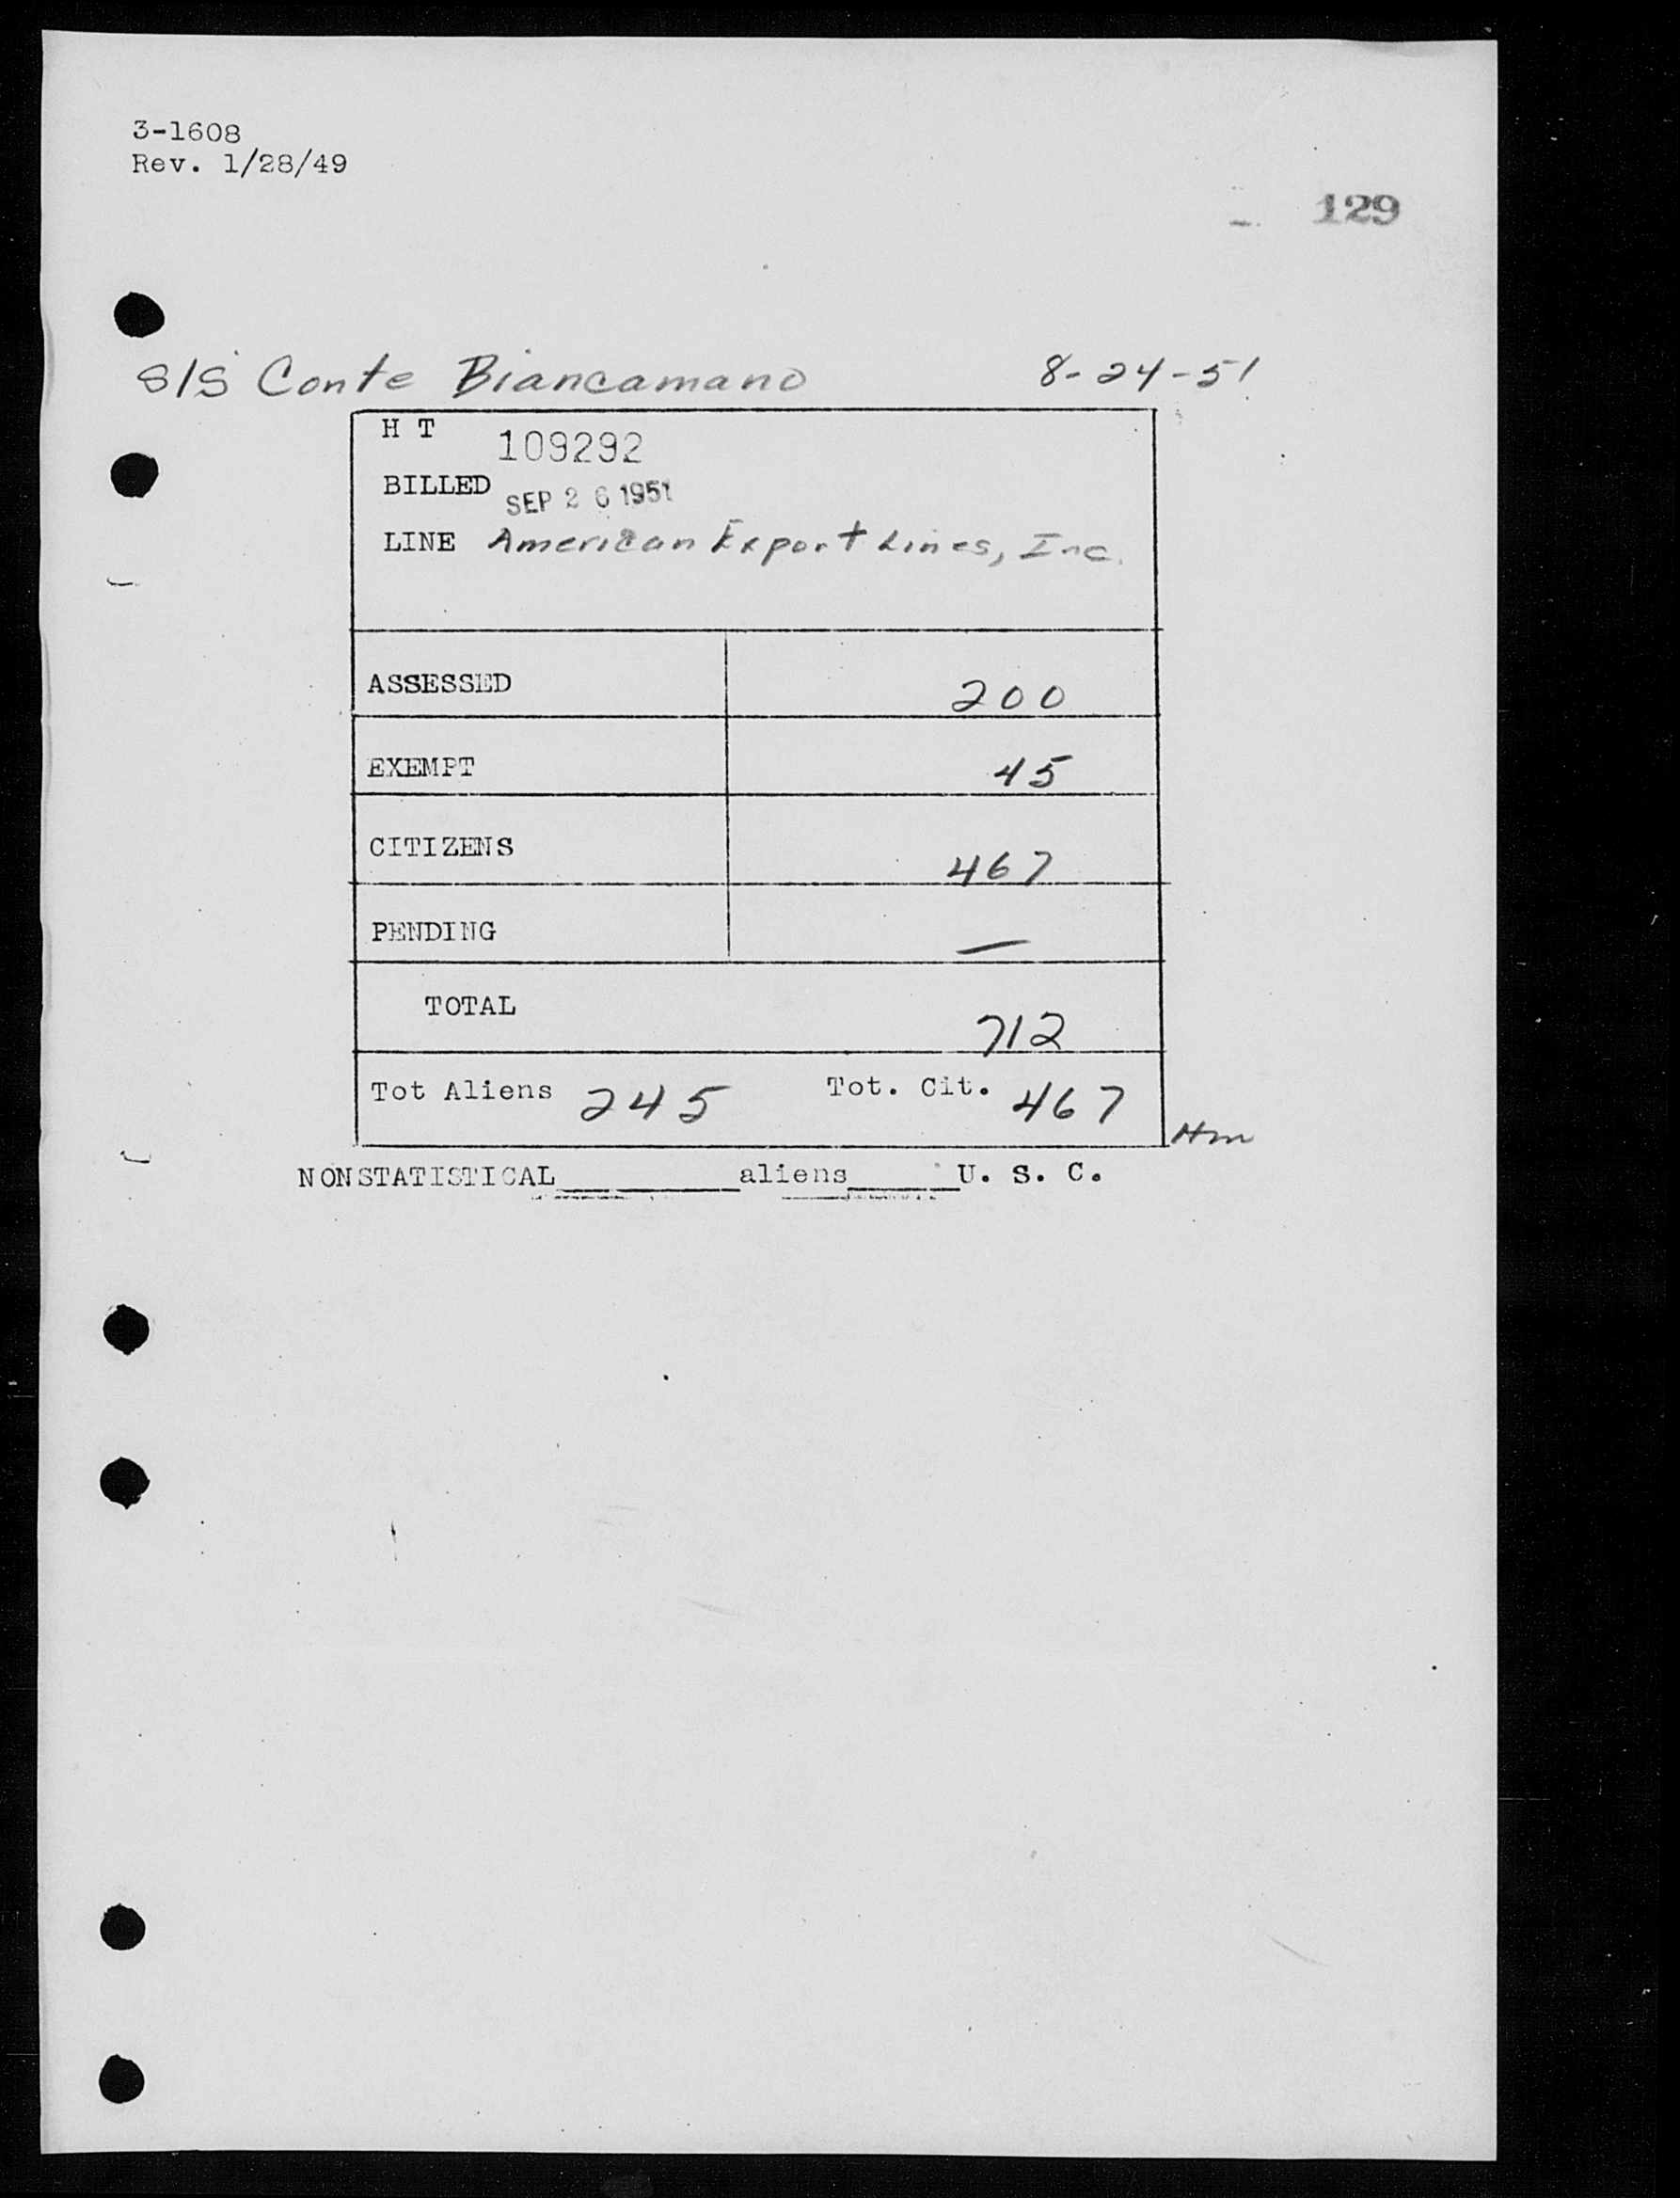 3-1608
Rev. 1/28/49
129
S/S Conte Biancamano 8-24-51
H T 109292
BILLED SEP 26 1951
LINE American Export Lines, Inc.
ASSESSED 200
EXEMPT 45
CITIZENS 467
PENDING —
TOTAL 712
Tot Aliens 245 Tot. Cit. 467
Hm
NONSTATISTICAL__________aliens______U. S. C.